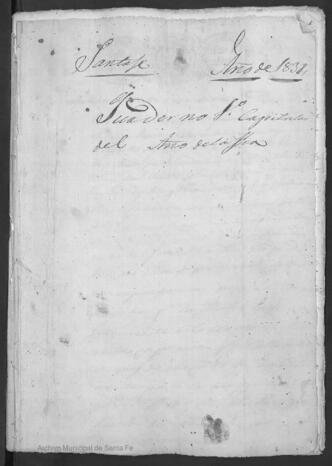 Santafe Año de 1831,,
Quaderno 1º Capitular
del Año de la fha
Archivo Municipal de Santa Fe